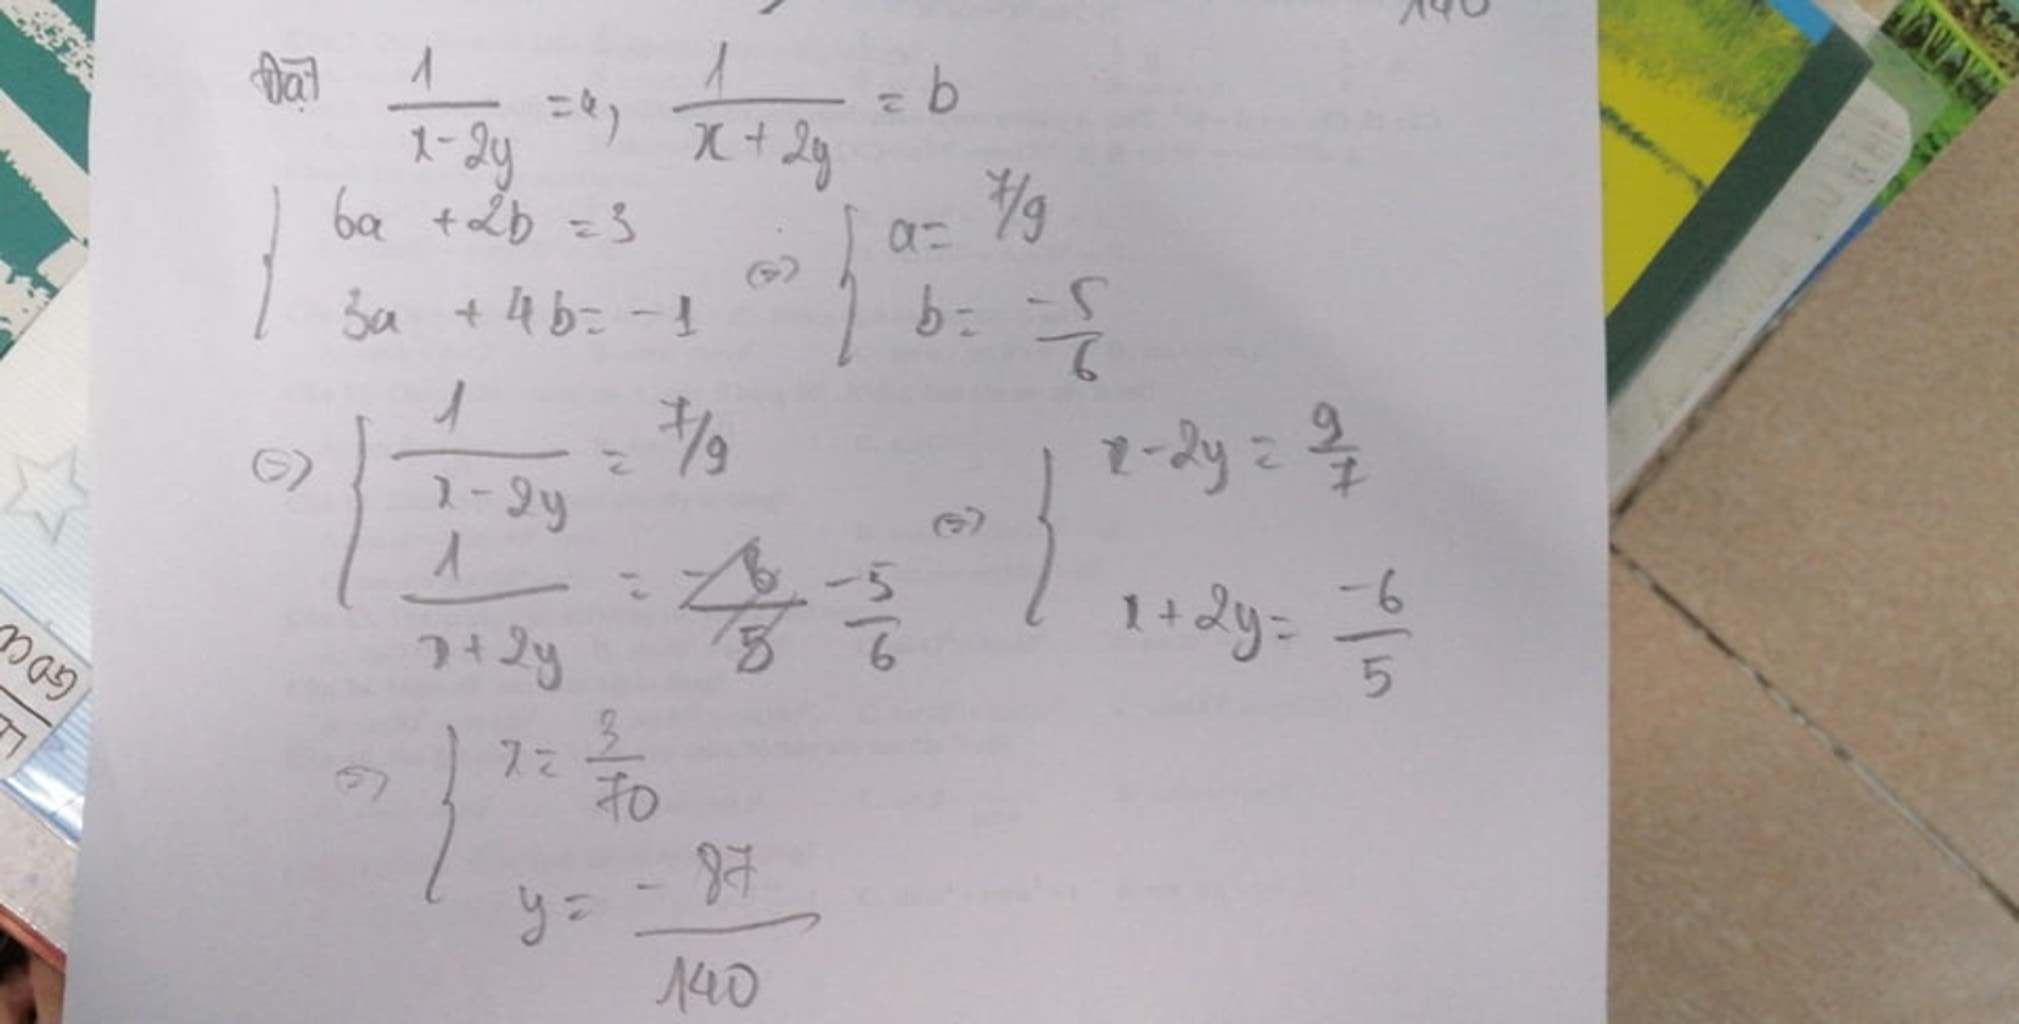 140
Đặt 1/(x-2y) = a, 1/(x+2y) = b
{ 6a + 2b = 3
3a + 4b = -1 (=) { a = 7/9
b = -5/6
(=) { 1/(x-2y) = 7/9
1/(x+2y) = -5/6 (=) { x-2y = 9/7
x+2y = -6/5
(=) { x = 3/70
y = -87/140
GDCD